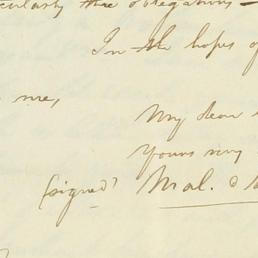 the obligations
In the hopes of
me,
My dear
Yours very
(signed) Mal.